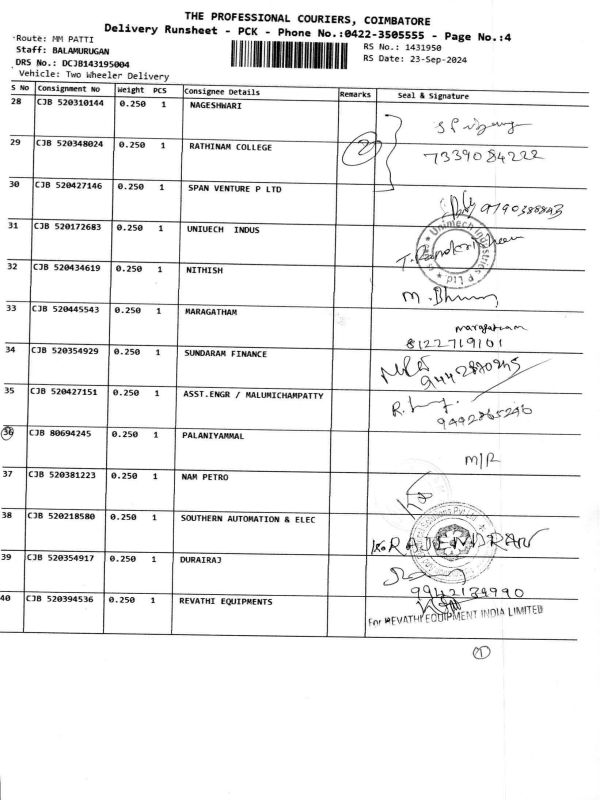 THE PROFESSIONAL COURIERS, COIMBATORE
Delivery Runsheet - PCK - Phone No.:0422-3505555 - Page No.:4
Route: MM PATTI
RS No.: 1431950
Staff: BALAMURUGAN
RS Date: 23-Sep-2024
DRS No.: DCJB143195004
Vehicle: Two Wheeler Delivery
S No Consignment No Weight PCS Consignee Details Remarks Seal & Signature
28 CJB 520310144 0.250 1 NAGESHWARI
29 CJB 520348024 0.250 1 RATHINAM COLLEGE 2 7339084222
30 CJB 520427146 0.250 1 SPAN VENTURE P LTD 9790388843
31 CJB 520172683 0.250 1 UNIUECH INDUS Unimech Industries P Ltd.
32 CJB 520434619 0.250 1 NITHISH
33 CJB 520445543 0.250 1 MARAGATHAM maragatham
8122719101
34 CJB 520354929 0.250 1 SUNDARAM FINANCE
35 CJB 520427151 0.250 1 ASST.ENGR / MALUMICHAMPATTY
9492865246
36 CJB 80694245 0.250 1 PALANIYAMMAL M/R
37 CJB 520381223 0.250 1 NAM PETRO
38 CJB 520218580 0.250 1 SOUTHERN AUTOMATION & ELEC RAJENDRAN
39 CJB 520354917 0.250 1 DURAIRAJ
9942134990
40 CJB 520394536 0.250 1 REVATHI EQUIPMENTS
For REVATHI EQUIPMENT INDIA LIMITED
1